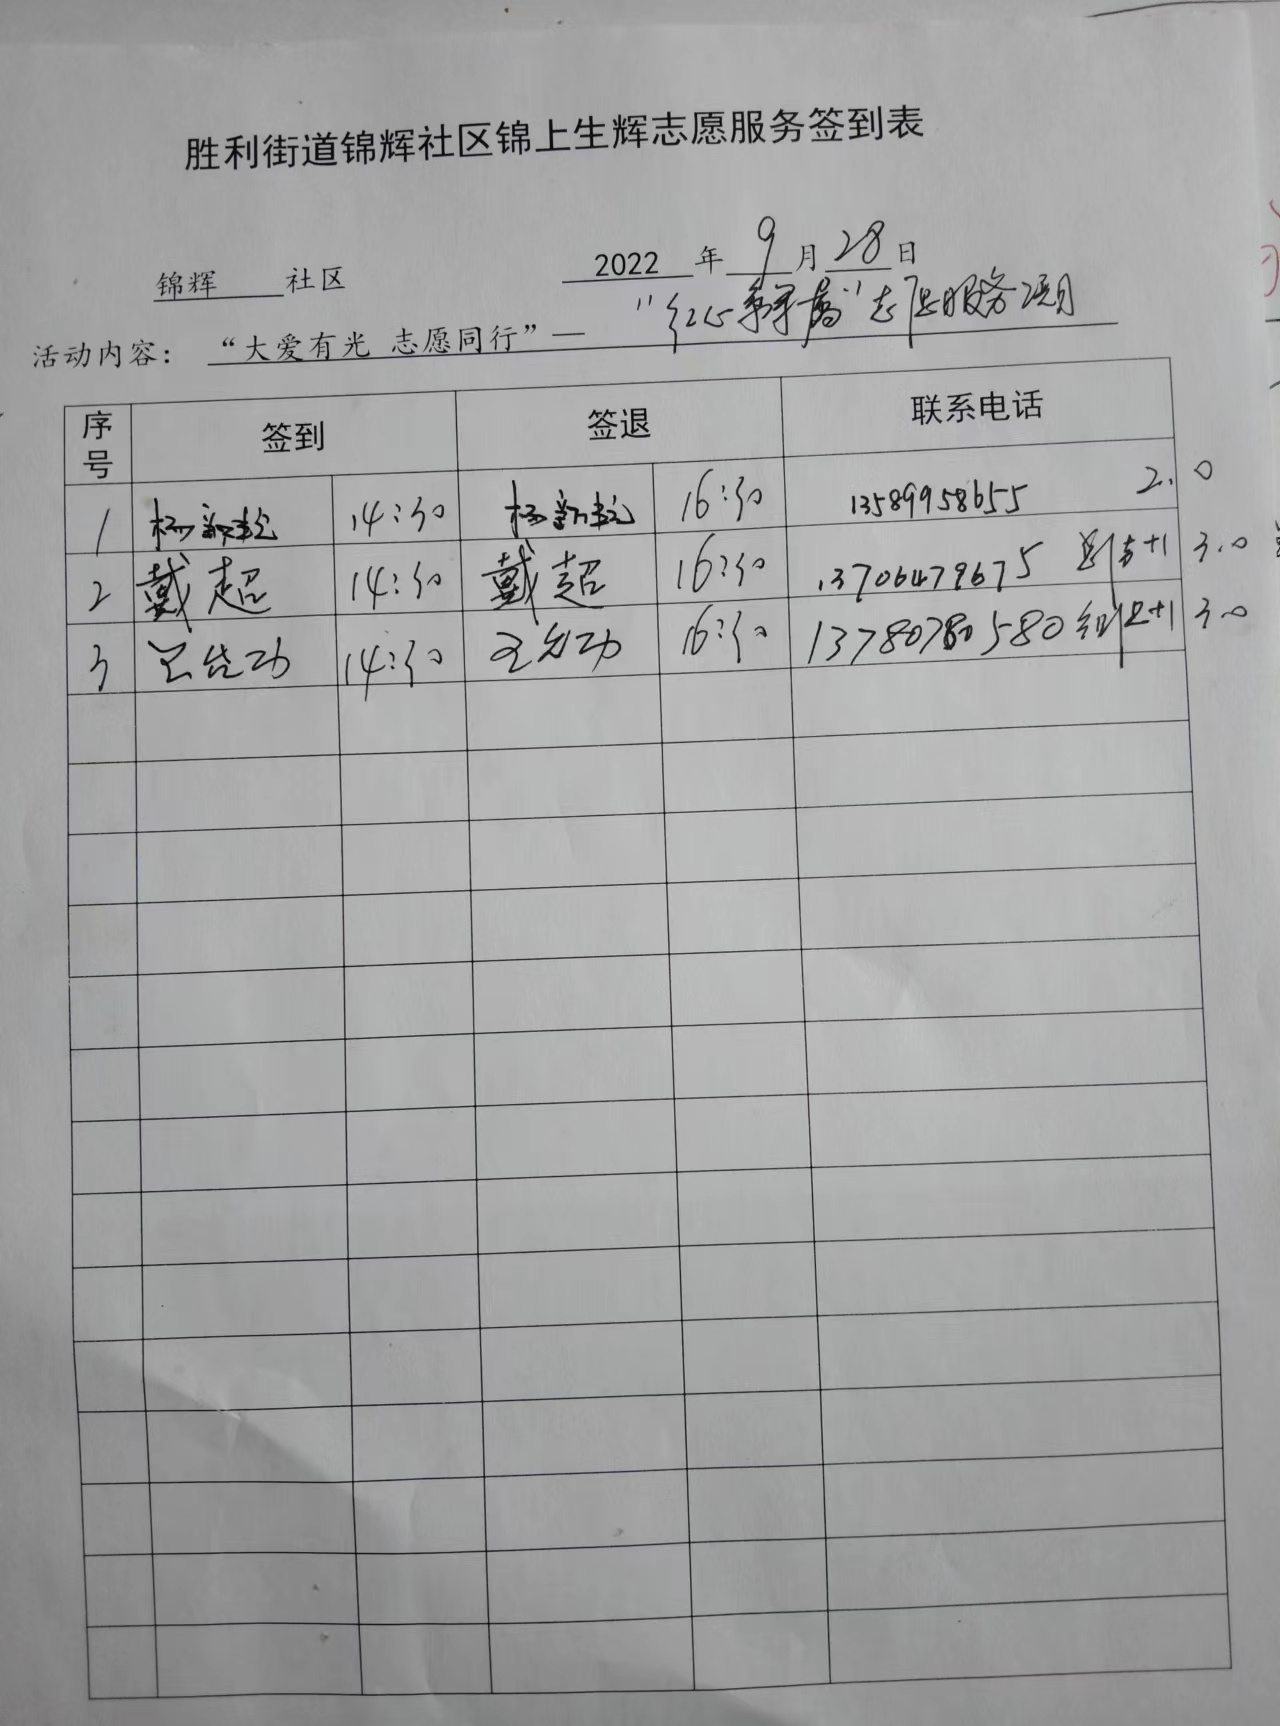 胜利街道锦辉社区锦上生辉志愿服务签到表
锦辉 社区 2022 年 9 月 28 日
活动内容： “大爱有光 志愿同行”— “红心系军属”志愿服务项目
序号 签到 签退 联系电话
1 杨新 14:30 杨新 16:30 13589958655 2.0
2 戴超 14:30 戴超 16:30 13706479675 +1 3.0
3 14:30 16:30 13780780580 +1 3.0